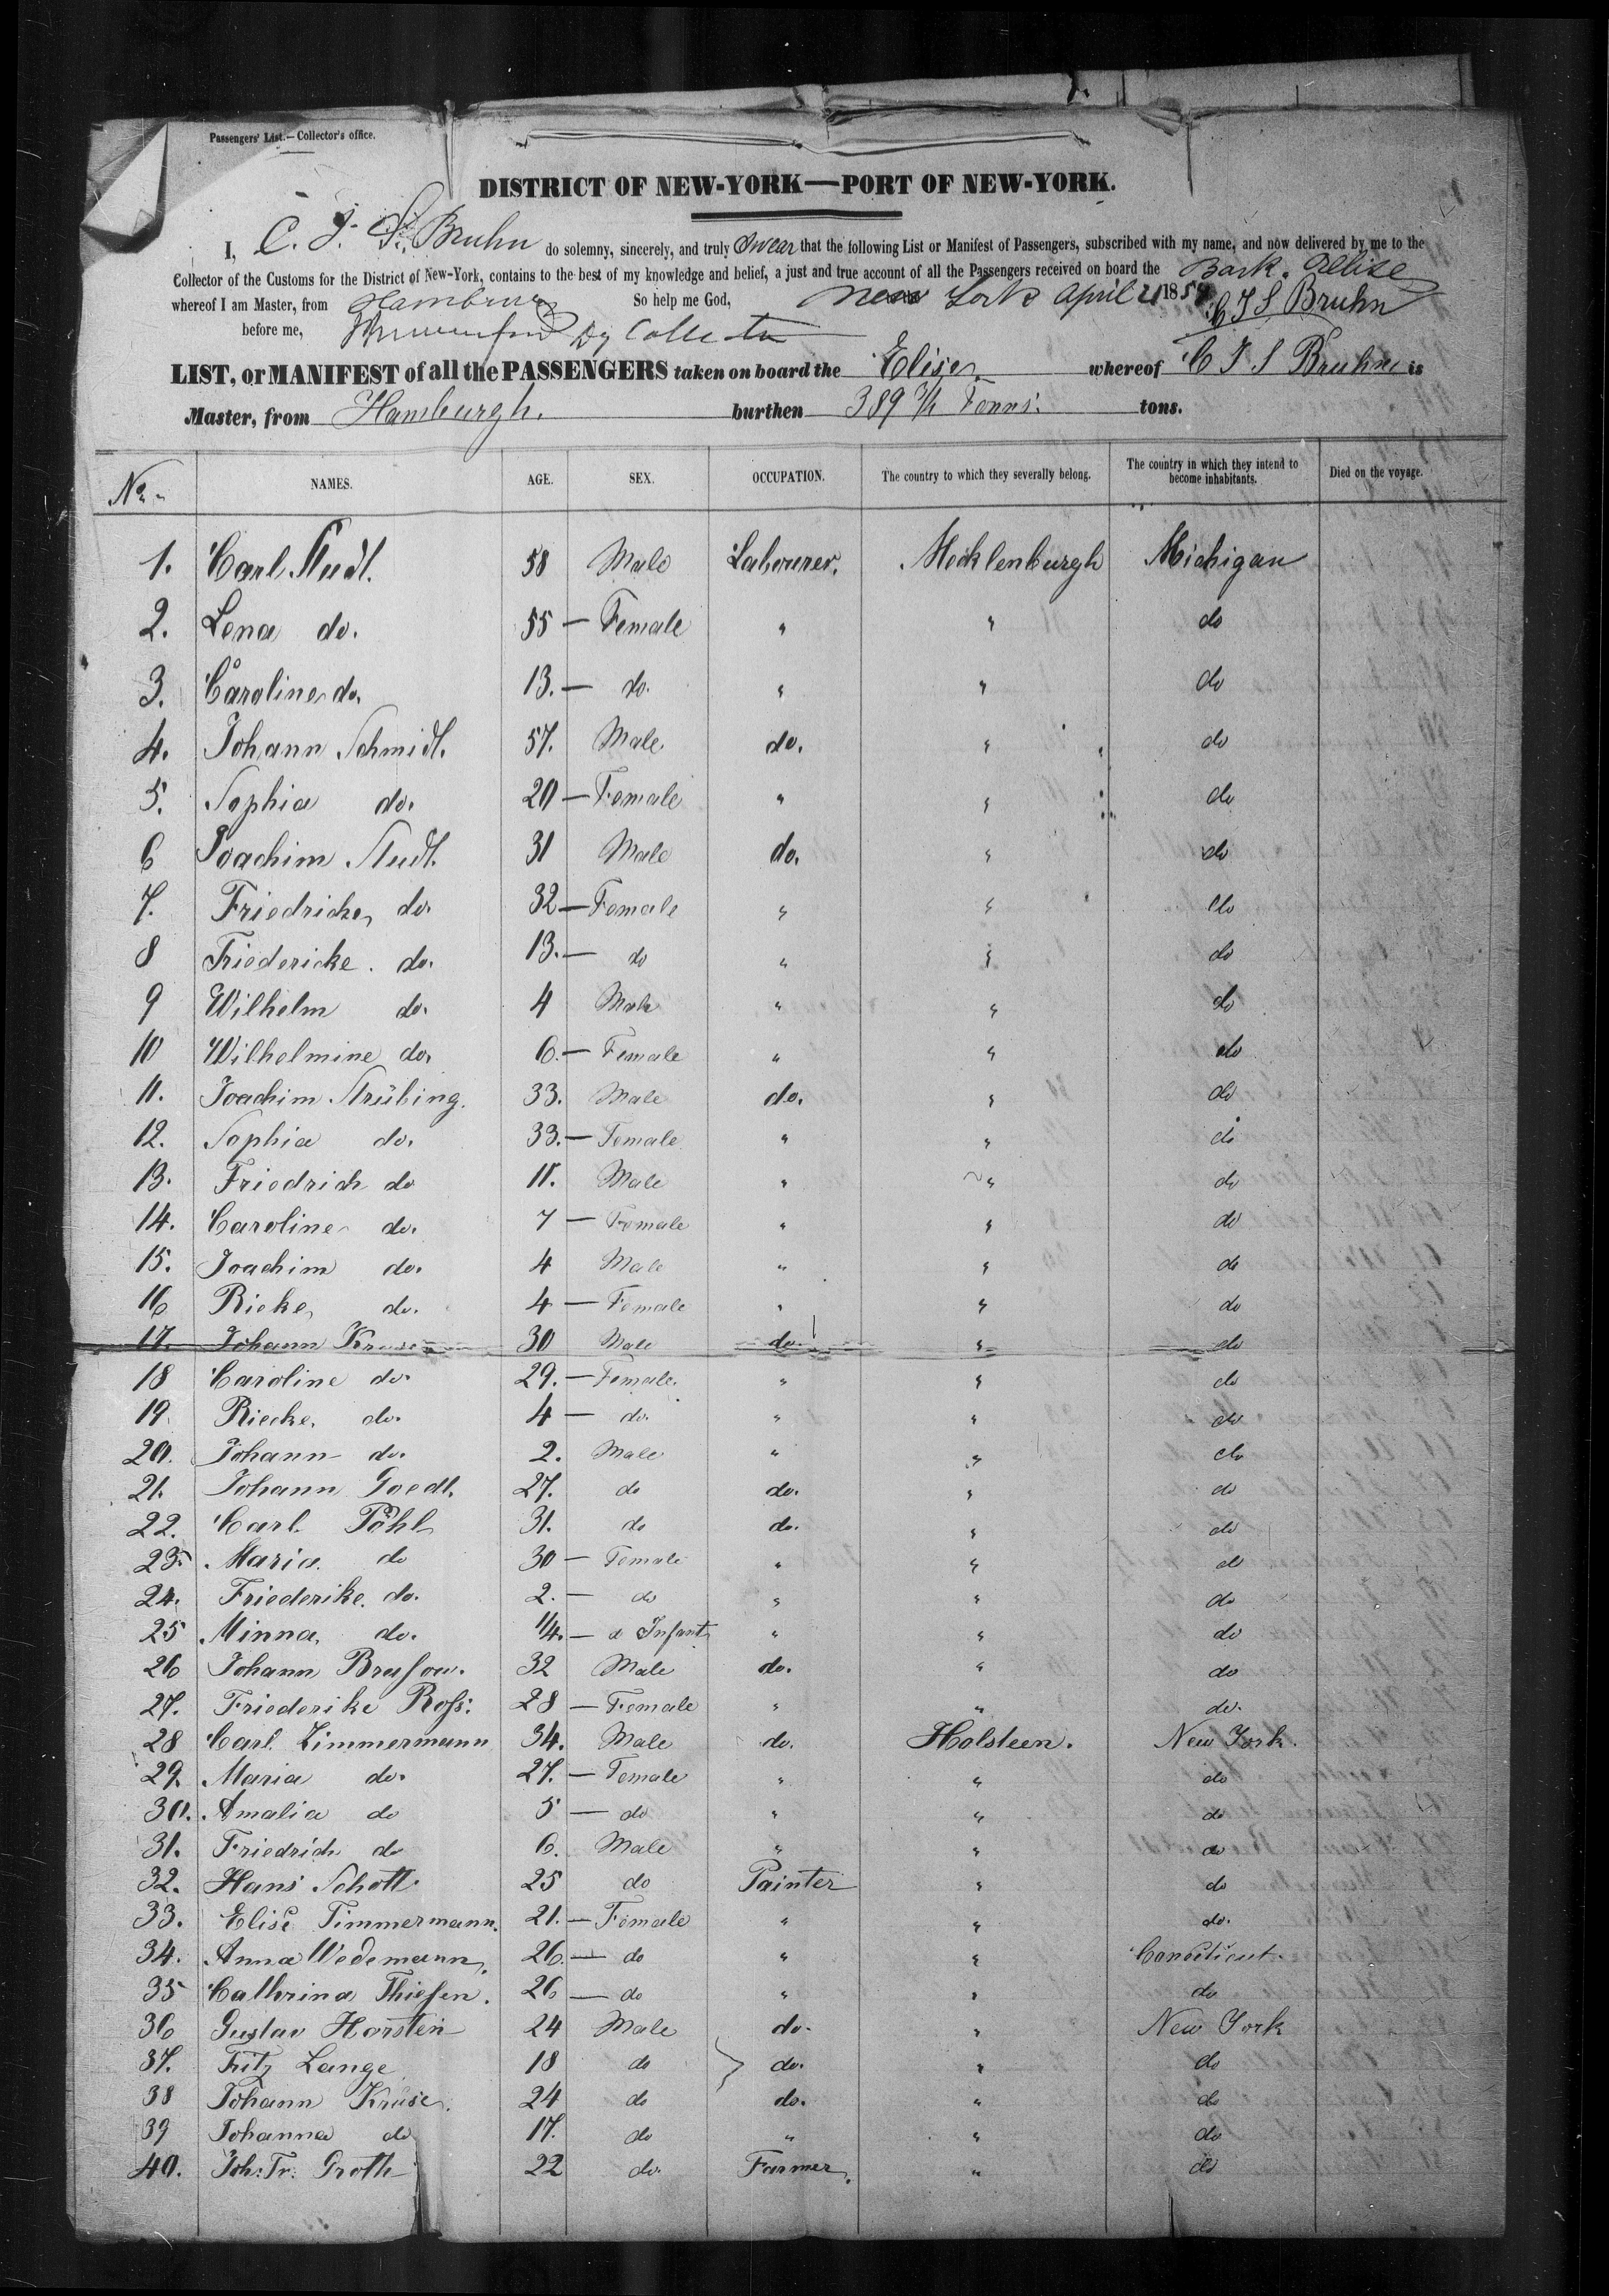 Passengers' List.—Collector's office.
DISTRICT OF NEW-YORK—PORT OF NEW-YORK.
I, C. J. S. Bruhn do solemny, sincerely, and truly Swear that the following List or Manifest of Passengers, subscribed with my name, and now delivered by me to the
Collector of the Customs for the District of New-York, contains to the best of my knowledge and belief, a just and true account of all the Passengers received on board the Bark. Elise
whereof I am Master, from Hamburg So help me God, New York April 21 185 C J S Bruhn
before me, Dy Collector
LIST, or MANIFEST of all the PASSENGERS taken on board the Elise whereof C J S Bruhn is
Master, from Hamburgh. burthen 389 Tonns. tons.
No. NAMES. AGE. SEX. OCCUPATION. The country to which they severally belong. The country in which they intend to become inhabitants. Died on the voyage.
1. Carl Studt. 58 Male Labourer. Mecklenburgh Michigan
2. Lena do. 55 — Female " " do
3. Caroline do. 13. — do. " " do
4. Johann Schmidt. 57. Male do. " do
5. Sophia do. 20 — Female " " do
6 Joachim Studt. 31 Male do. " do
7. Friedricke do. 32 — Female " " do
8 Friedericke. do. 13. — do " " do
9 Wilhelm do. 4 Male " " do
10 Wilhelmine do. 6. — Female " " do
11. Joachim Strübing. 33. Male do. " do
12. Sophia do. 33. — Female " " do
13. Friedrich do 11. Male " " do
14. Caroline do. 7 — Female " " do
15. Joachim do. 4 Male " " do
16 Rieke do. 4 — Female " " do
17. Johann Kruse 30 Male do. " do
18 Caroline do. 29. — Female. " " do
19. Riecke. do. 4 — do. " " do
20. Johann do. 2. Male " " do
21. Johann Goedt. 27. do do. " do
22. Carl Pöhl 31. do do. " do
23. Maria. do 30 — Female " " do
24. Friederike. do. 2. — do " " do
25 Minna, do. 1/4. — a Infant " " do
26 Johann Brasow. 32 Male do. " do
27. Friederike Roß: 28 — Female " " do.
28 Carl Zimmermann 34. Male do. Holsteen. New York.
29. Maria do. 27. — Female " " do
30. Amalia do 5 — do " " do
31. Friedrich do 6. Male " " do
32. Hans Schott. 25 do Painter " do
33. Elise Timmermann. 21. — Female " " do.
34. Anna Wedemann. 26. — do " " Conecticut.
35 Cathrina Thießen. 26 — do " " do
36 Gustav Horstein 24 Male do. " New York
37. Fritz Lange 18 do do. " do
38 Johann Kruse. 24 do do. " do
39 Johanna do 17. do " " do
40. Joh: Fr: Groth 22 do. Farmer. " do